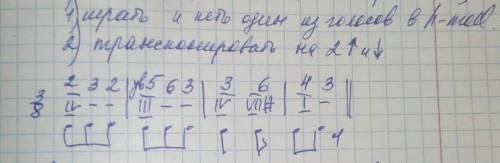 1) играть и петь один из голосов в h-moll.
2) транспонировать на 2↑ и ↓
3/8 2 3 2 | ♭5 6 3 | 3 6 | 4 3 ||
IV - - | III - - | IV VII# | I -